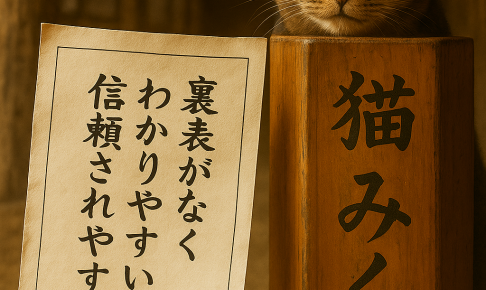 裏表がなく
わかりやすい
信頼されやす
猫みく